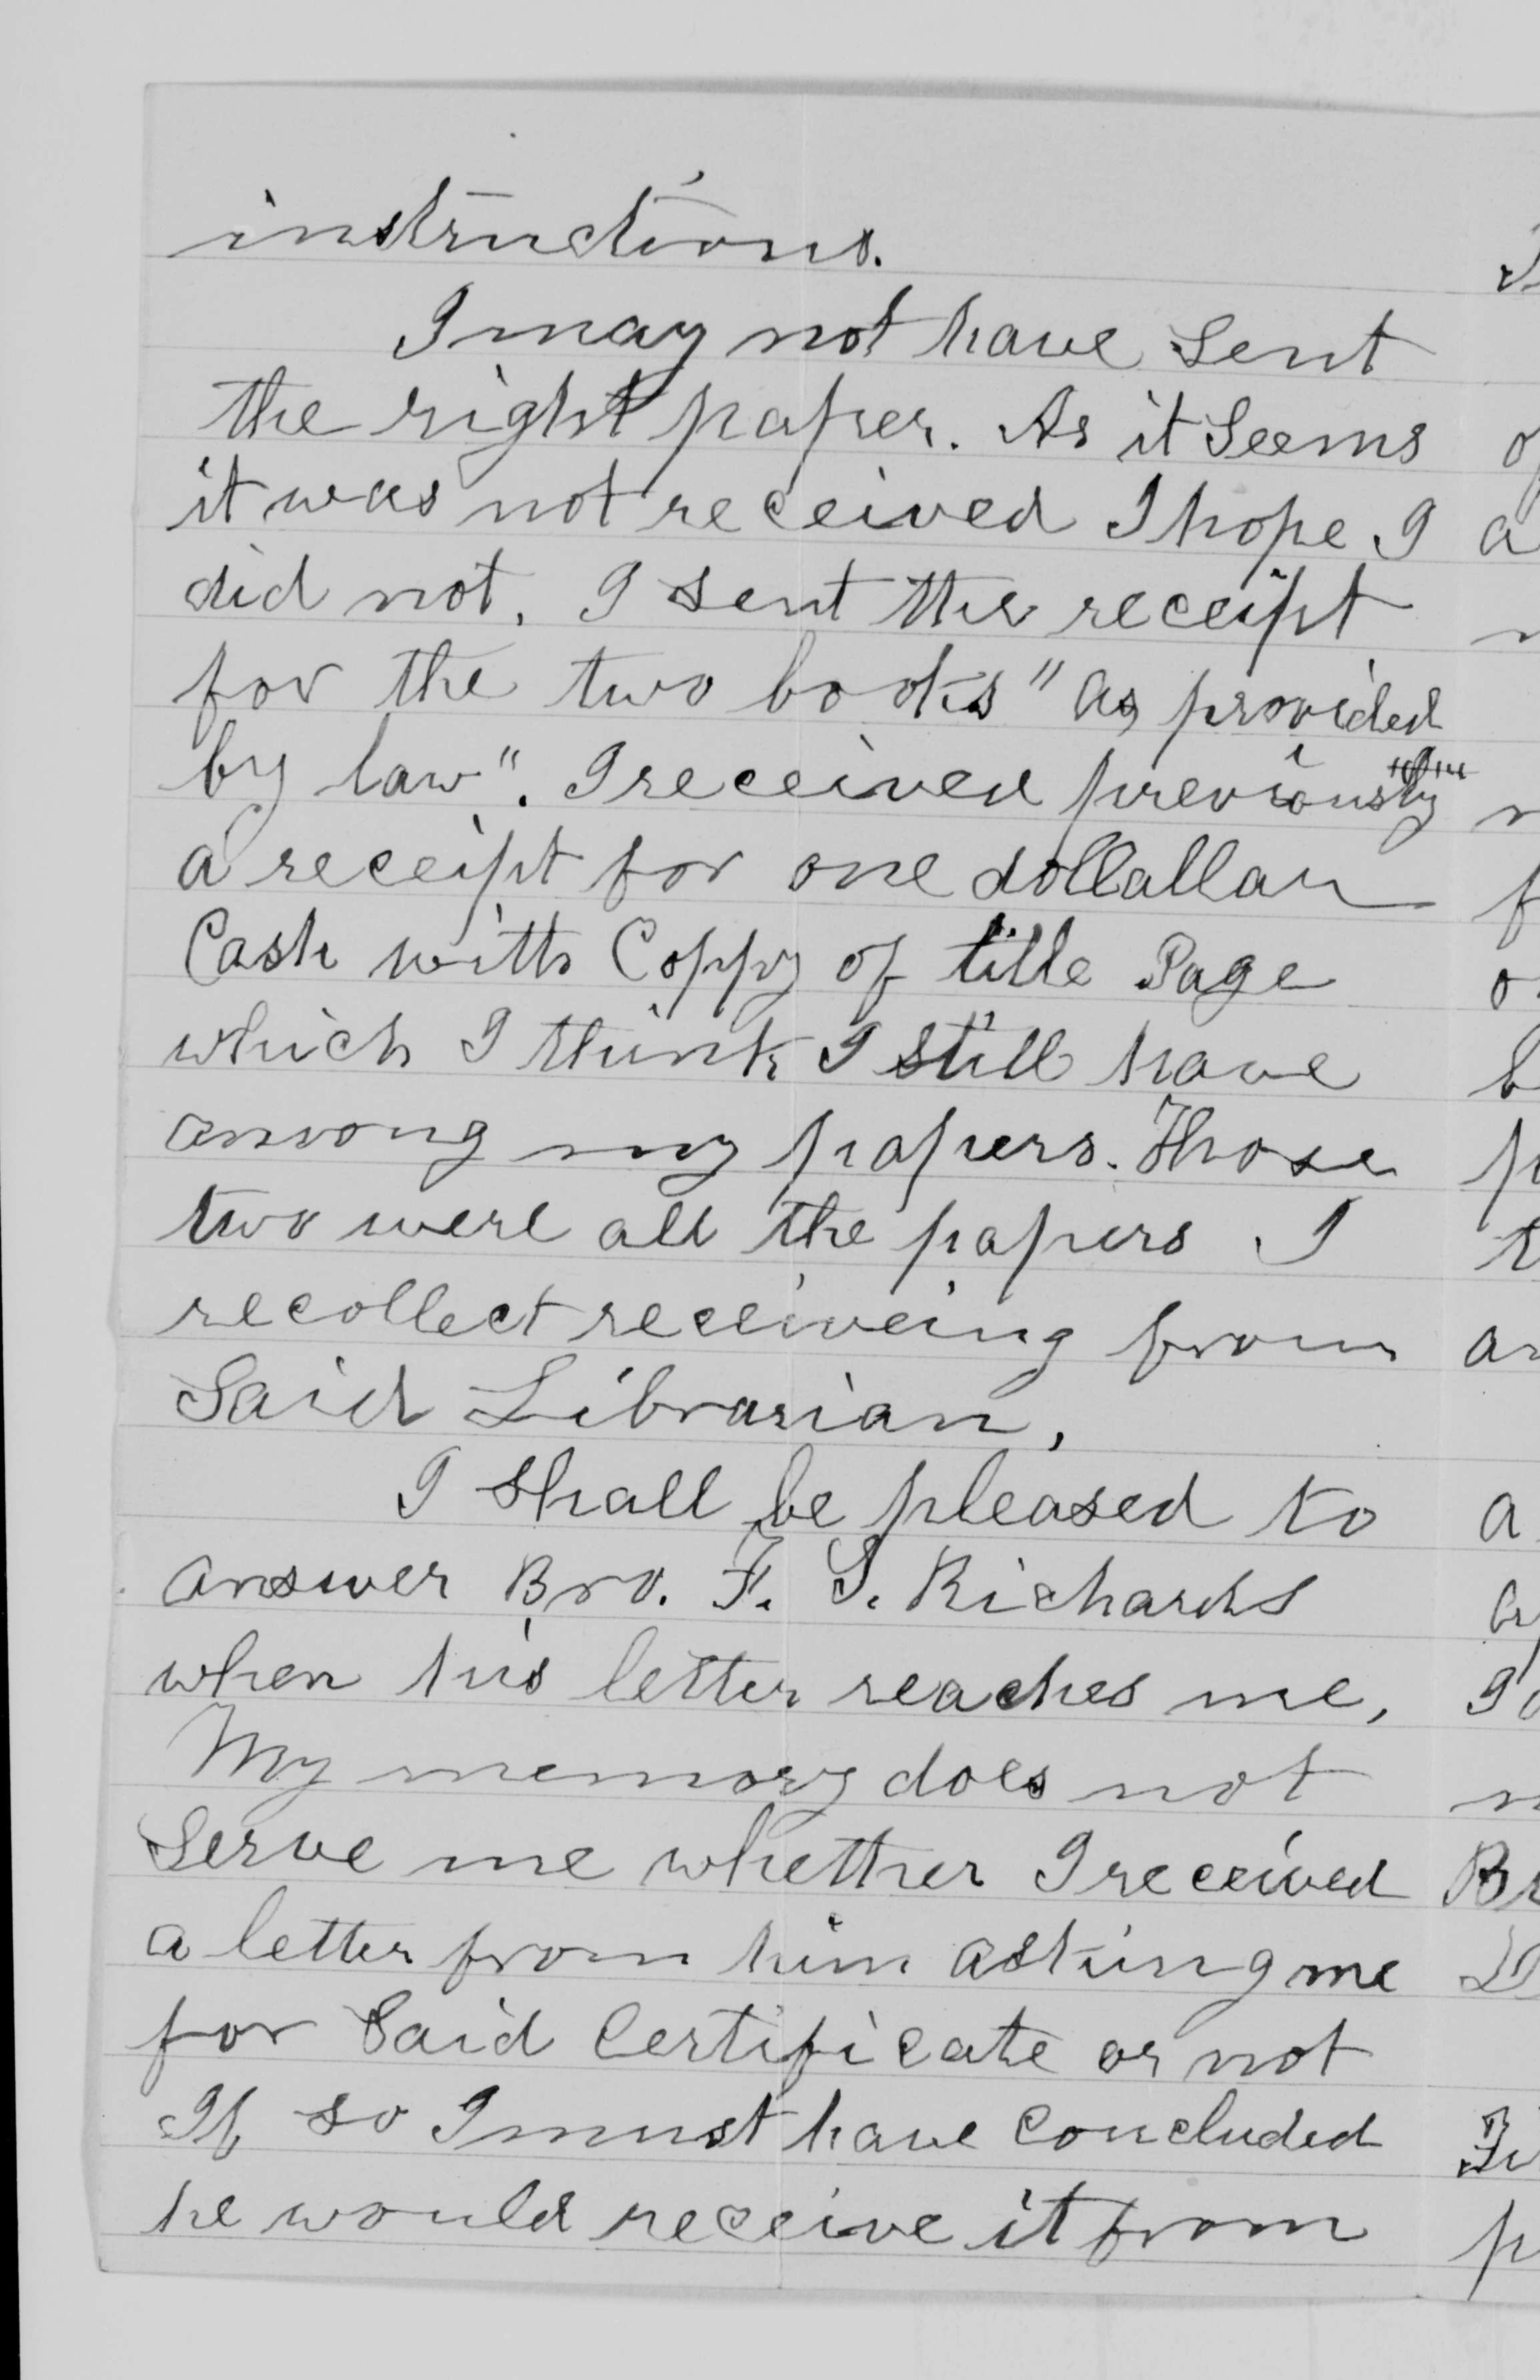 instructions.
I may not have Sent
the right paper. As it Seems
it was not received I hope I
did not. I sent the receipt
for the two books "as provided
by law". I received previously
a receipt for one dollallar
Cash with Coppy of title Page
which I think I still have
among my papers. Those
two were all the papers I
recollect receiveing from
Said Librarian,
I shall be pleased to
answer Bro. F. S. Richards
when his letter reaches me,
My memory does not
Serve me whether I received
a letter from him asking me
for Said Certificate or not
If so I must have Concluded
he would receive it from